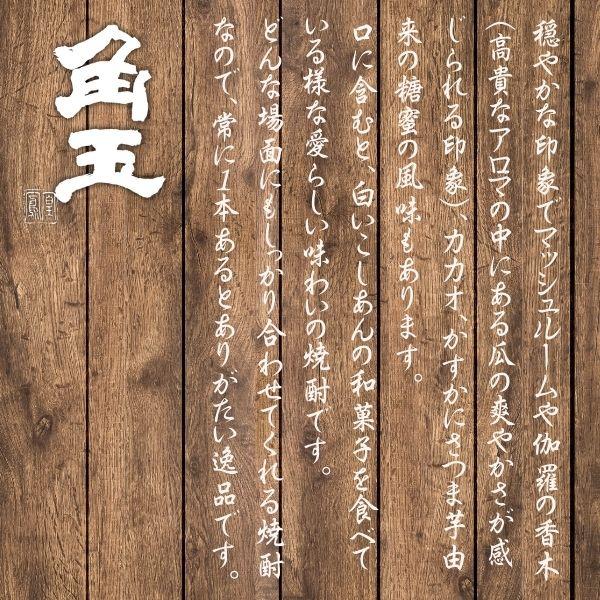 穏やかな印象でマッシュルームや伽羅の香木
（高貴なアロマの中にある瓜の爽やかさが感
じられる印象）、カカオ、かすかにさつま芋由
来の糖蜜の風味もあります。
口に含むと、白いこしあんの和菓子を食べて
いる様な愛らしい味わいの焼酎です。
どんな場面にもしっかり合わせてくれる焼酎
なので、常に１本あるとありがたい逸品です。
角玉